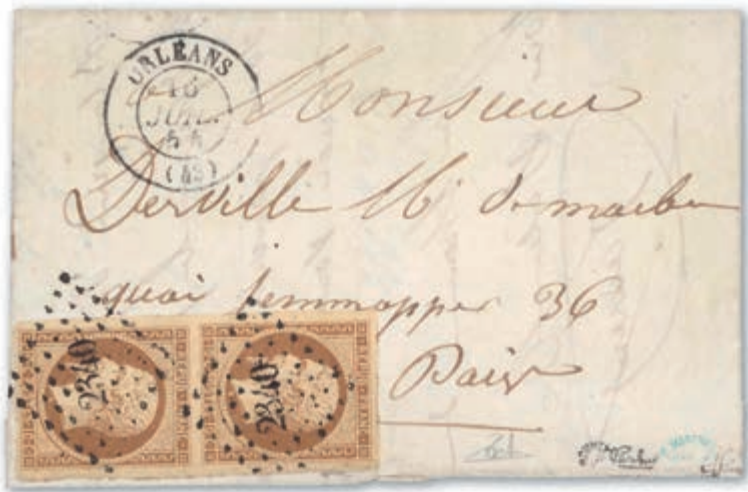 ORLÉANS
16
JUIL.
54
(43)
Monsieur
Derville Md de marbre
quai Jemmapper 36
Paris
2340
2340